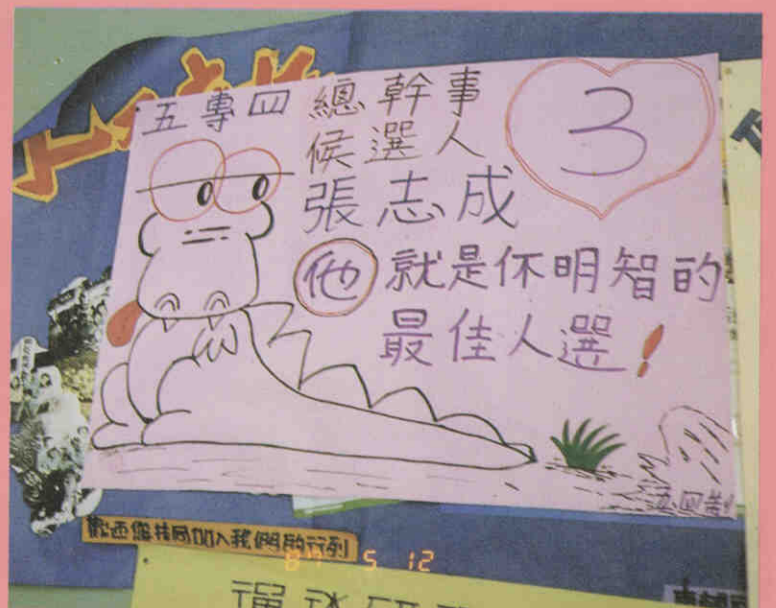 五專四 總幹事
候選人
張志成
3
他就是你明智的
最佳人選!
歡迎您共同加入我們的行列
87 5 12